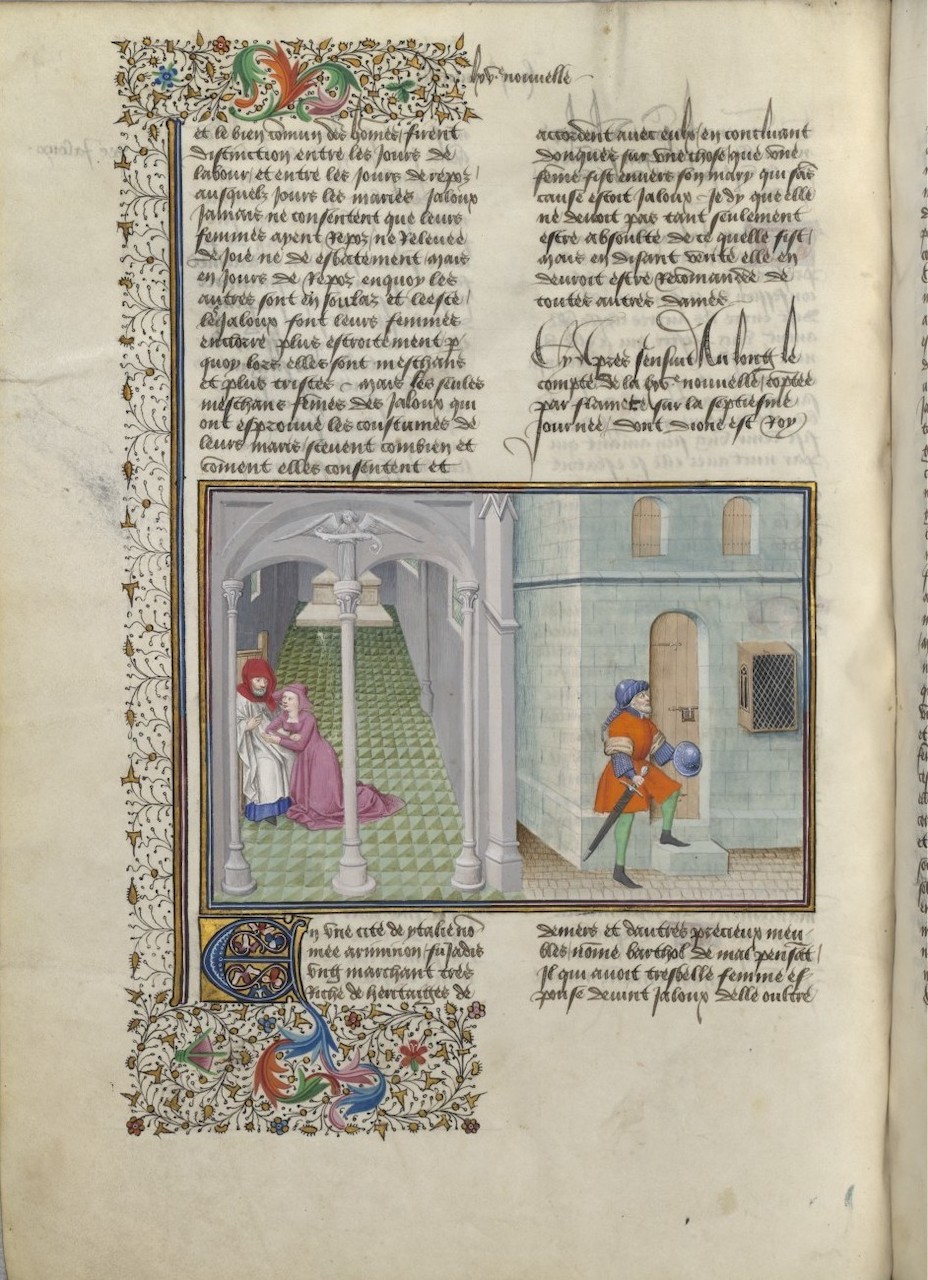 lxv^e nouvelle
et le bien cõmun des hõmes / firent
distinction entre les jours de
labour / et entre les jours de repoz /
ausquelz jours les mariés jaloux
jamais ne consentent que leurs
femmes ayent repoz / ne relevee
de joie ne de esbatement / mais
en jours de repoz enquoy les
autres sont en soulaz et leesce /
les jaloux font leurs femmes
enclorre plus estroitement p
quoy lors elles sont meschans
et plus tristes / mais les seules
meschans fẽmes des jaloux qui
ont esprouvé les coustumes de
leurs maris / scevent combien et
cõment elles consentent et
accordent avec eulx / en concluant
donques sur une chose / que une
fẽme fist envers son mary qui sãs
cause estoit jaloux / je dy que elle
ne devoit pas tant seulement
estre absoulte de ce quelle fist /
mais en disant verité elle en
devroit estre recõmandee de
toutes autres dames
Cy apres sensuit au long le
compte de la lxv^e nouvelle / cõptee
par flamete / sur la septiesme
journee / dont dioné est roy
En une cité de ytalie nõ
mee ariminon / fu jadis
ung marchant tres
riche de heritaiges de
deniers et dautres precieux meu
bles / nõmé barthol de mal pensãt /
Il qui avoit tresbelle femme es
pouse devint jaloux delle oultre